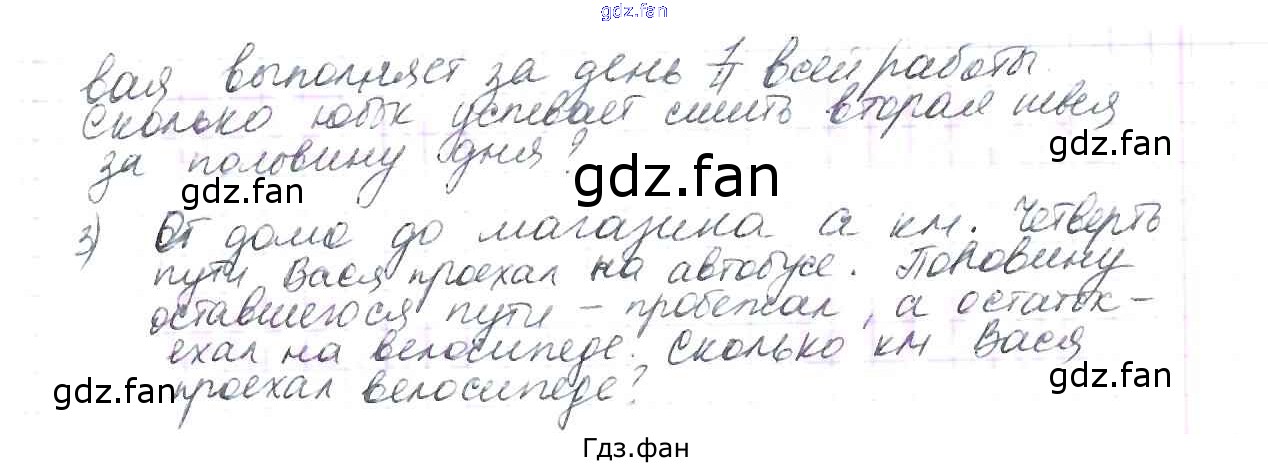 gdz.fan
вая выполняет за день 1/11 всей работы.
Сколько юбок успевает сшить вторая швея
gdz.fan
за половину дня?
gdz.fan
gdz.fan
3) От дома до магазина a км. Четверть
пути Вася проехал на автобусе. Половину
оставшегося пути – пробежал, а остаток –
ехал на велосипеде. Сколько км Вася
gdz.fan
gdz.fan
проехал велосипеде?
Гдз.фан